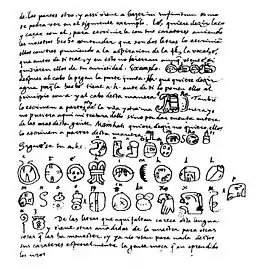 de las partes otro, y assi viene a hazer in infinitum como
se podra ver en el siguiente exemplo. Lé, quiere dezir laço
y caçar con el, para escrivirle con sus carateres aviendo
les nosotros hecho entender que son dos letras lo escrivian
ellos con tres puniendo a la aspiracion de la l, la vocal e,
que antes de si trae, y en esto no hierran
quisieren ellos de su curiosidad. Exemplo.
despues al cabo le pegan la parte junta. Ha que quiere dezir
agua porq la hache tiene a ante de si lo ponen ellos al
principio con a y al cabo desta manera
lo escriven a partes de la una y otra manera yo
no pusiera aqui ni tratara dello sino por dar cuenta entera
de las cosas desta gente. Mainkati quiere dezir no quiero ellos
lo escriven a partes desta manera
Siguese su a, b, c.
De las letras que aqui faltan carece esta lengua
y tiene otras añadidas de la nuestra para otras
cosas q las ha menester, y ya no usan para nada destos
sus carateres especialmente la gente moça q an aprendido
los nros